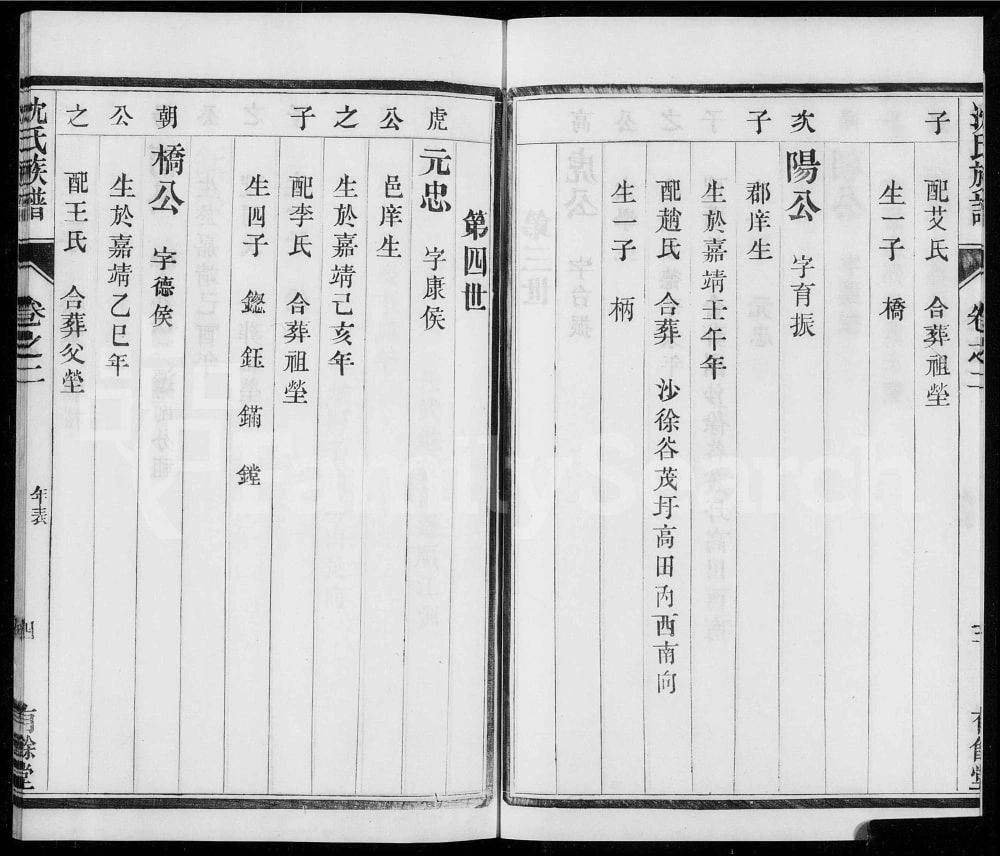 沈氏族譜 卷之二
子 配艾氏 合葬祖塋
生一子 橋
次 陽公 字育振
子 郡庠生
生於嘉靖壬午年
配趙氏 合葬 沙徐谷茂圩高田內酉南向
生一子 柄
第四世
虎 元忠 字康侯
公 邑庠生
之 生於嘉靖己亥年
子 配李氏 合葬祖塋
生四子 鍃 鈺 鏋 鏜
朝 橋公 字德侯
公 生於嘉靖乙巳年
之 配王氏 合葬父塋
沈氏族譜 卷之二 年表 四 有餘堂
FamilySearch